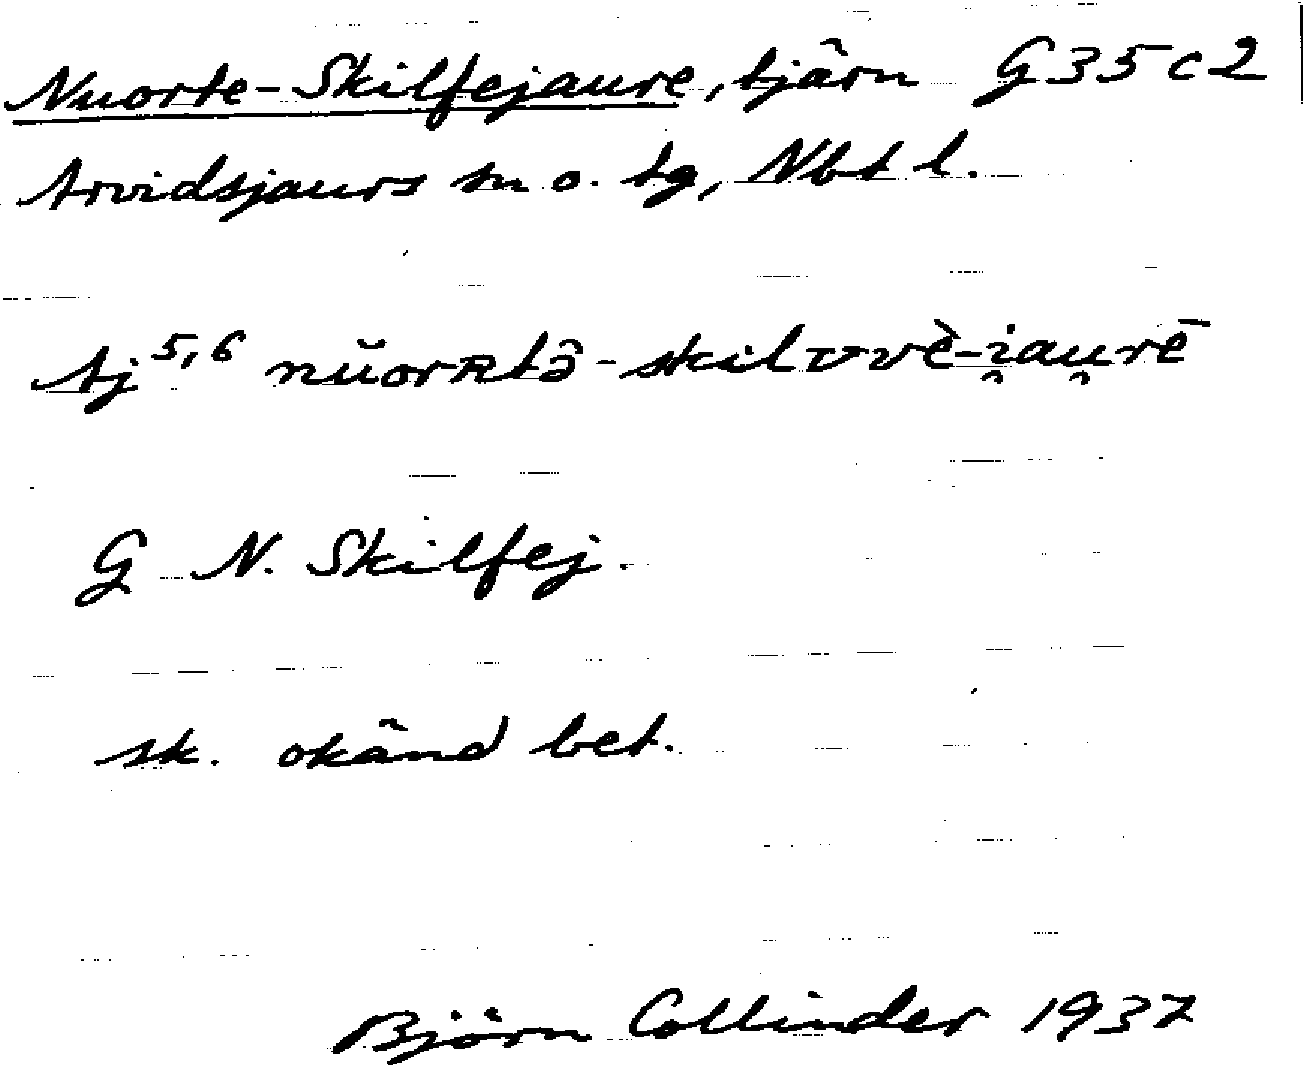 Nuorte-Skilfejaure, tjärn G35c2
Arvidsjaurs sn o. tg, Nbt l.
Aj 5,6 nŭorᴙtɔ̑-skilvvè-i̯au̯rē
G N. Skilfej.
sk. okänd bet.
Björn Collinder 1937